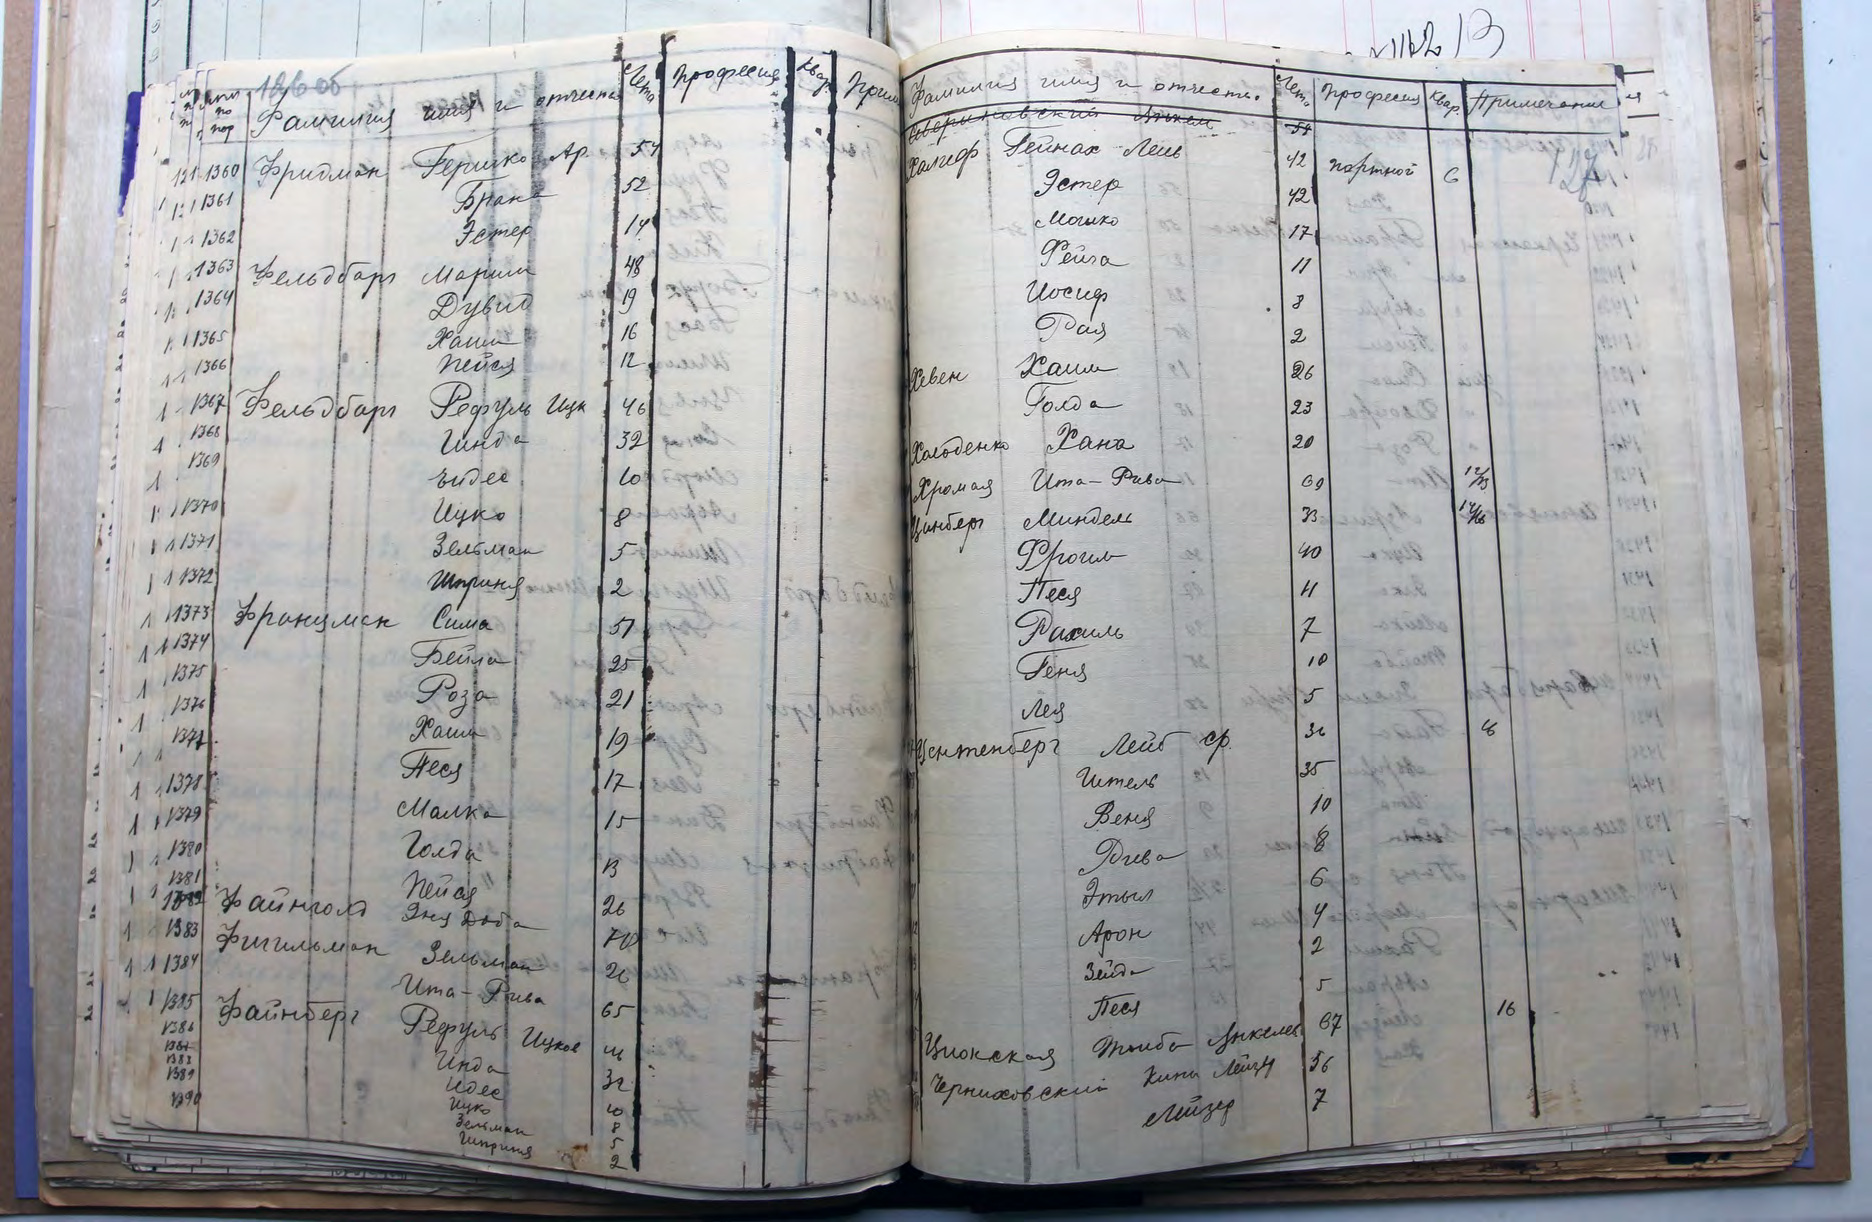 126 об
Фамилия имя и отчество Лета Профессия Квар. Прим
1360 Фридман Гершко Ар. 54
1361 Брана 52
1362 Эстер 14
1363 Фельдбарг Мариам 48
1364 Дувид 19
1365 Хаим 16
1366 Пейся 12
1367 Фельдбарг Рефуль Ицк 46
1368 Гинда 32
1369 Идес 10
1370 Ицко 8
1371 Зельман 5
1372 Шприня 2
1373 Французман Сима 51
1374 Бейла 25
1375 Роза 21
1376 Хаим 19
1377 Песя 17
1378 Малка 15
1379 Голда 13
1380 Пейся 26
1381
1382 Файнголд Эня Доба 70
1383 Фигильман Зельман 26
1384 Ита-Рива 65
1385 Файнберг Рефуль Ицков 46
1386 Инда 32
1387 Идес 10
1388 Ицко 8
1389 Зельман 5
1390 Шприня 2
Фамилия имя и отчество. Лета Профессия Квар. Примечание
54
127
Халиф Гейнах Лейб 42 портной 6
Эстер 42
Мошко 17
Фейга 11
Иосиф 8
Рая 2
Хевен Хаим 26
Голда 23
Холоденко Хана 20
Хромая Ита-Рива 69 12/13
Цинберг Миндель 33 14/16
Фроим 40
Песя 11
Рахиль 7
Геня 10
Лея 5
Центенберг Лейб ср. 36 16
Ител 35
Веня 10
Рива 8
Этыл 6
Арон 4
Зейда 2
Песя 5
Ционская Тойба Янкелев 67 16
Черниховский Лейзер 56
Лейзер 7